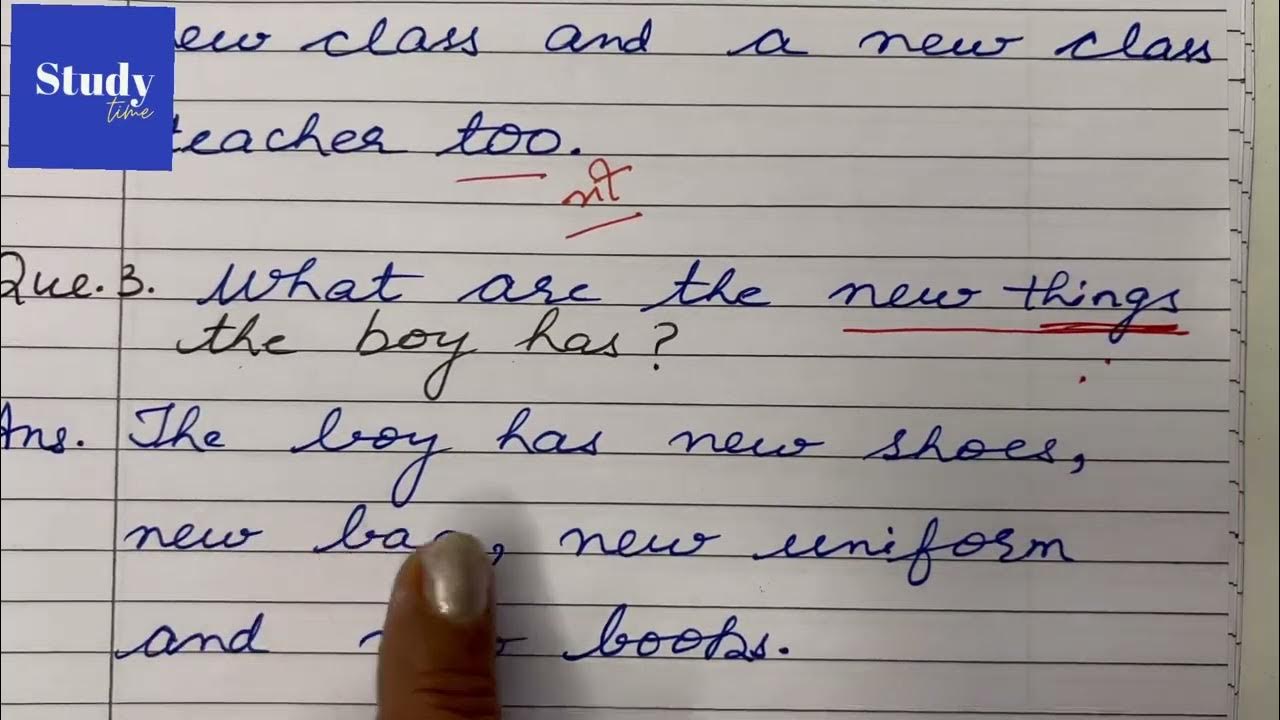 Study
time
ew class and a new class
teacher too.
भी
Que.3. What are the new things
the boy has?
Ans. The boy has new shoes,
new ba, new uniform
and books.